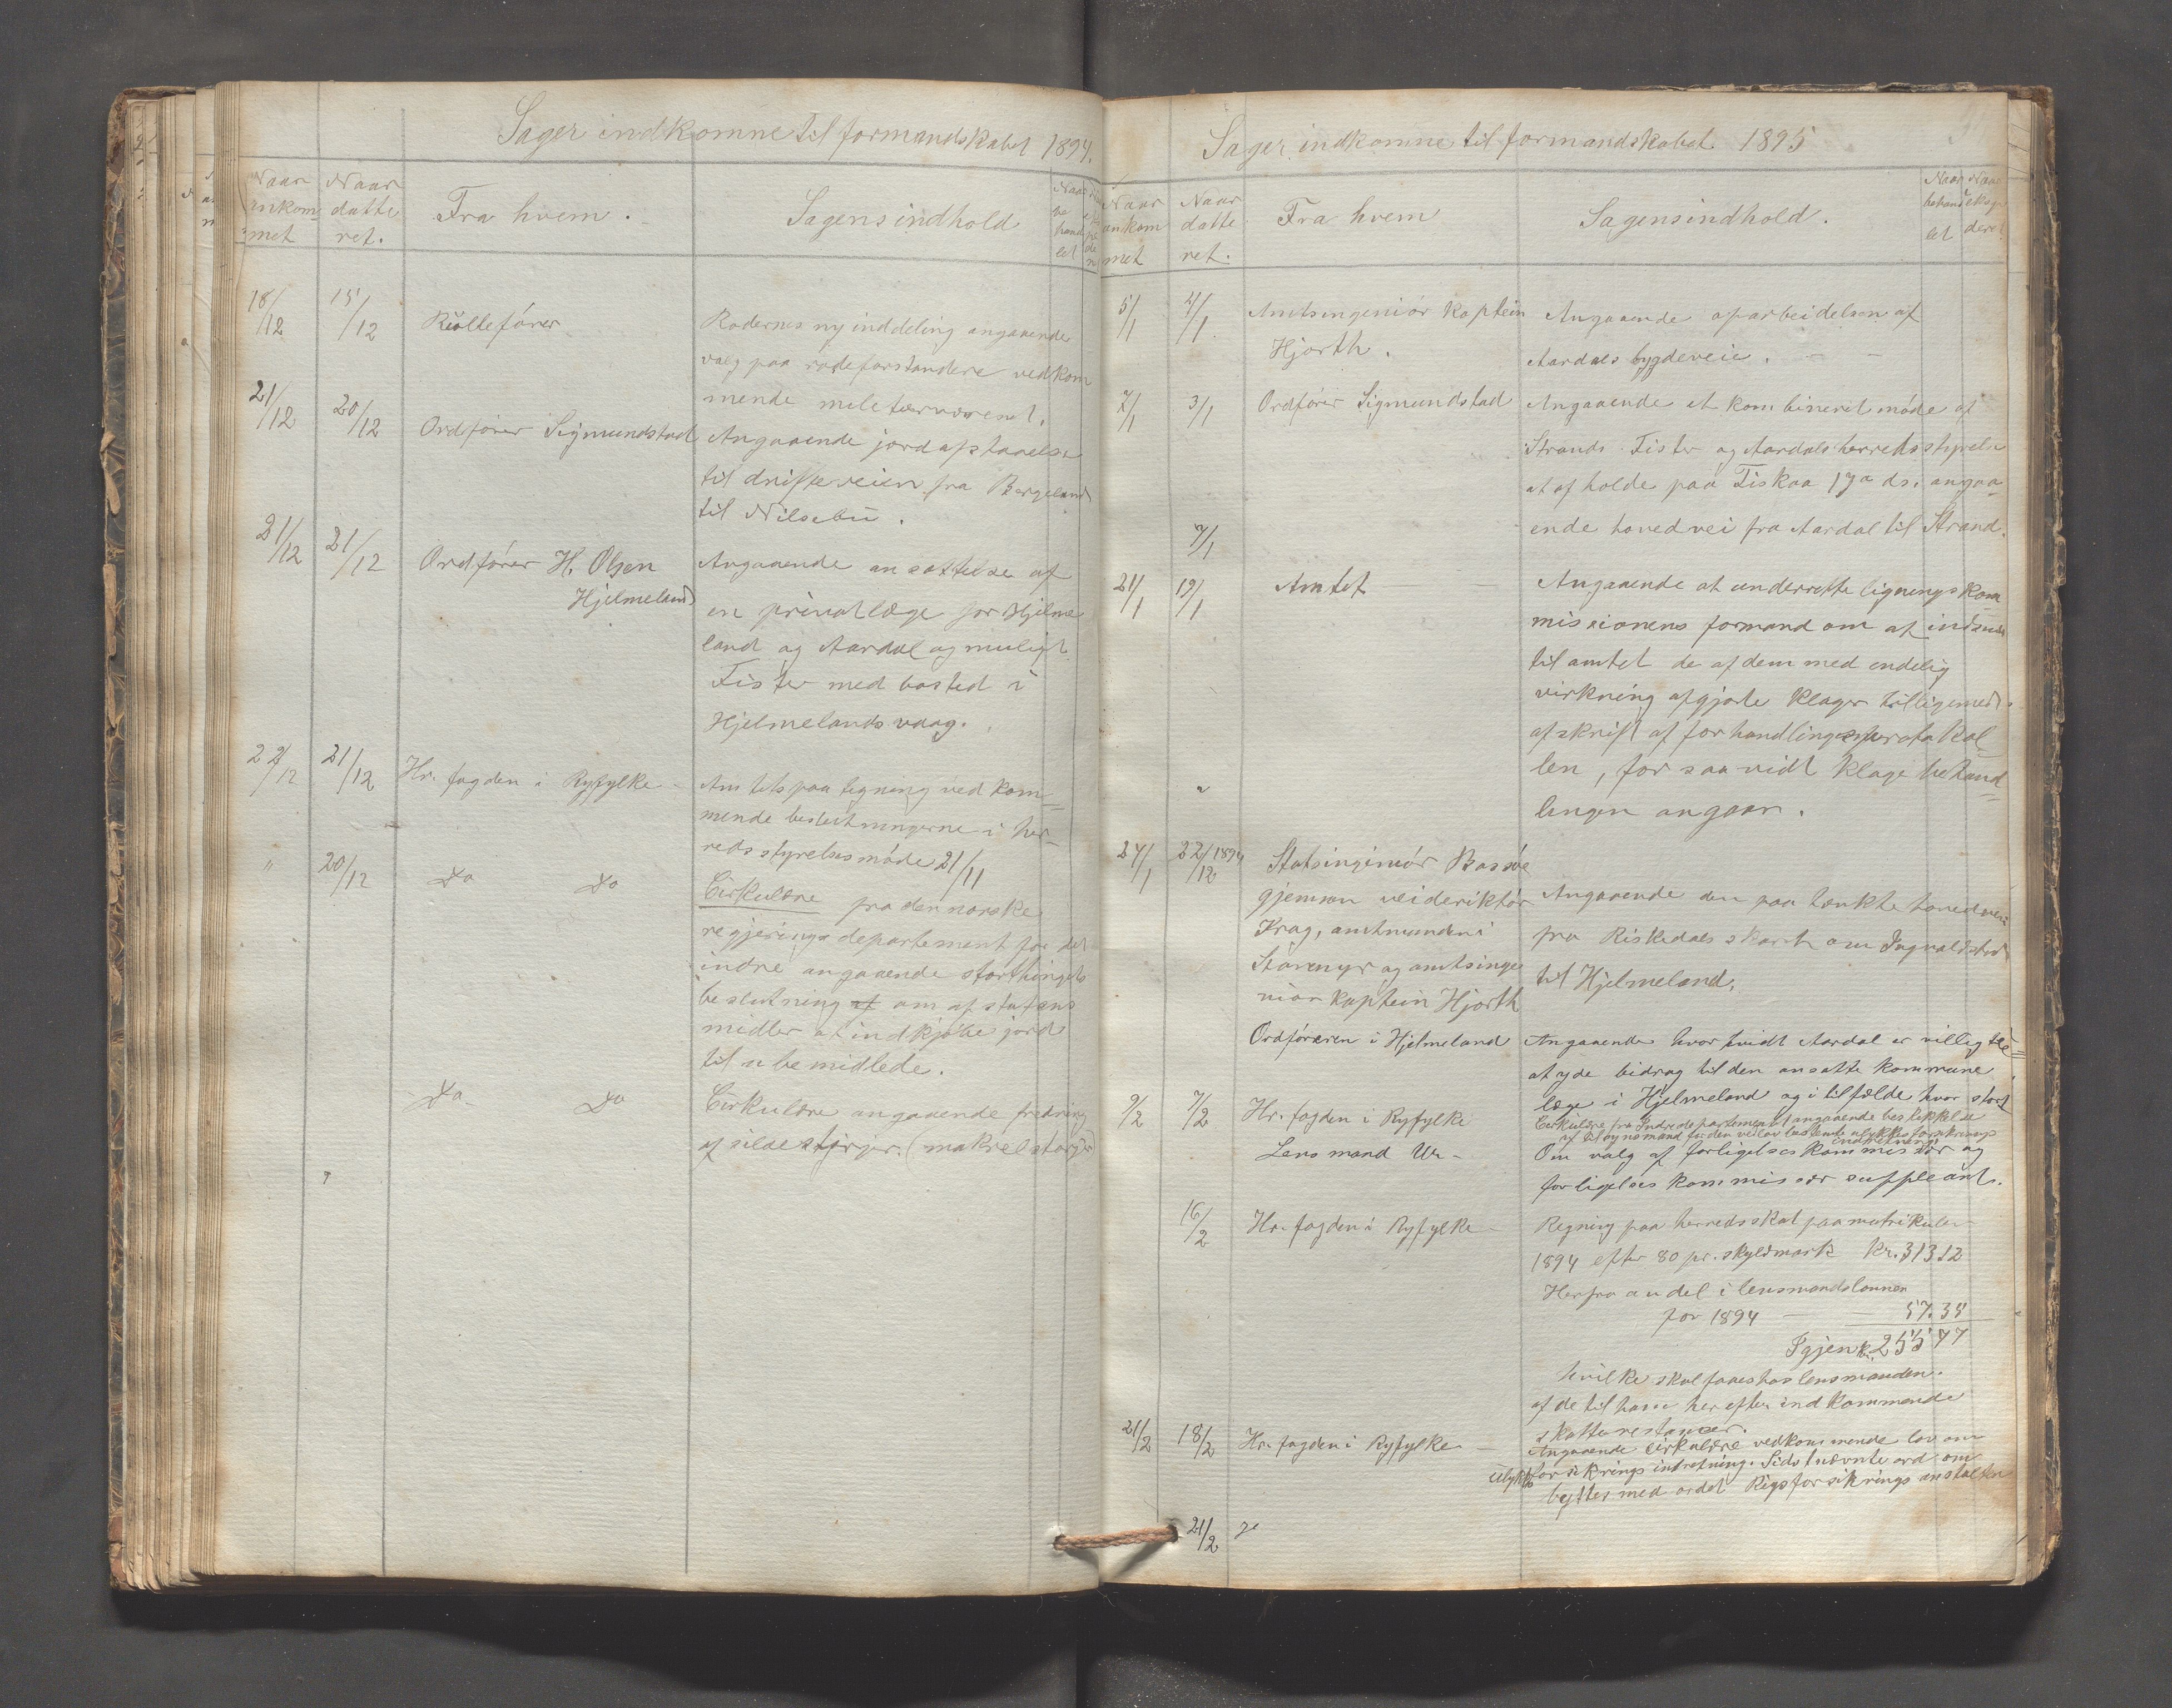 Sager indkomne til formandskabet 1894.
Naar ankommet
Naar datteret.
Fra hvem.
Sagens indhold
Naar behandlet
18/12 15/12 Rullefører
Rodernes ny inddeling angaaende
valg paa rodeforstandere vedkom
mende miletærvæsenet.
21/12 20/12 Ordfører Sigmundstad
Angaaende jordafstaaelse
til drifteveien fra Bergeland
til Nilsebu.
21/12 21/12 Ordfører H. Olsen
Hjelmeland
Angaaende ansættelse af
en privatlæge for Hjelme
land og Aardal og muligt
Fister med bosted i
Hjelmelandsvaag.
22/12 21/12 Hr. fogden i Ryfylke
Amtets paategning vedkom=
mende beslutningerne i her
redsstyrelsesmøde 21/11
" 20/12 Do Do
Cirkulære fra den norske
regjerings departement for det
indre angaaende storthingets
beslutning af om af statens
midler at indkjøbe jord
til ubemidlede.
Do Do
Cirkulære angaaende fredning
af sildestørjer (makrelstørjer)
Sager indkomne til formandskabet 1895
Naar ankommet
Naar datteret.
Fra hvem
Sagens indhold.
Naar behandlet
Naar ekspederet
5/1 4/1 Amtsingeniør kaptein
Hjorth.
Angaaende oparbeidelsen af
Aardals bygdeveie.
7/1 3/1 Ordfører Sigmundstad
Angaaende et kombineret møde af
Strands Fister og Aardals herredsstyrelse
at afholde paa Tiskaa 17de ds. angaa=
ende hovedvei fra Aardal til Strand.
7/1
21/1 19/1 Amtet
Angaaende at underrette ligningskom
missionens formand om at indsende
til amtet de af dem med endelig
virkning afgjorte klager tilligemed
afskrift af forhandlingsprotokol
len, for saavidt klagebehand=
lingen angaar.
24/1 22/12 1894 Statsingeniør Bassøe
gjennem veidirektør
Krag, amtmanden i
Stavanger og amtsinge
niør kaptein Hjorth
Angaaende den paatænkte hovedvei
fra Riskedals skaret om Ingvaldstad
til Hjelmeland.
Ordføreren i Hjelmeland
Angaaende hvorvidt Aardal er villig til
at yde bidrag til den ansatte kommune
læge i Hjelmeland og i tilfælde hvor stort
9/2 7/2 Hr. fogden i Ryfylke
Cirkulære fra Indredepartementet angaaende beskikkelse
af tilsynsmand for den ved lov bestemte ulykkesforsikrings
indretning
Lensmand
Om valg af forligelseskommissær og
forligelses kommissær suppleant.
16/2 Hr. fogden i Ryfylke
Regning paa herredsskat paa matrikulen
1894 efter 80 pr. skyldmark Kr. 313 12
Herfra andel i lensmandslønnen
for 1894 57.35
Igjen kr. 255 77
hvilke skal faaes hos lensmanden.
af de til ham herefter indkommende
skatterestancer.
21/2 18/2 Hr. fogden i Ryfylke
Angaaende cirkulære vedkommende lov om
ulykkesforsikrings indretning. Sidstnævnte ord om
byttes med ordet Rigsforsikrings anstalten
21/2